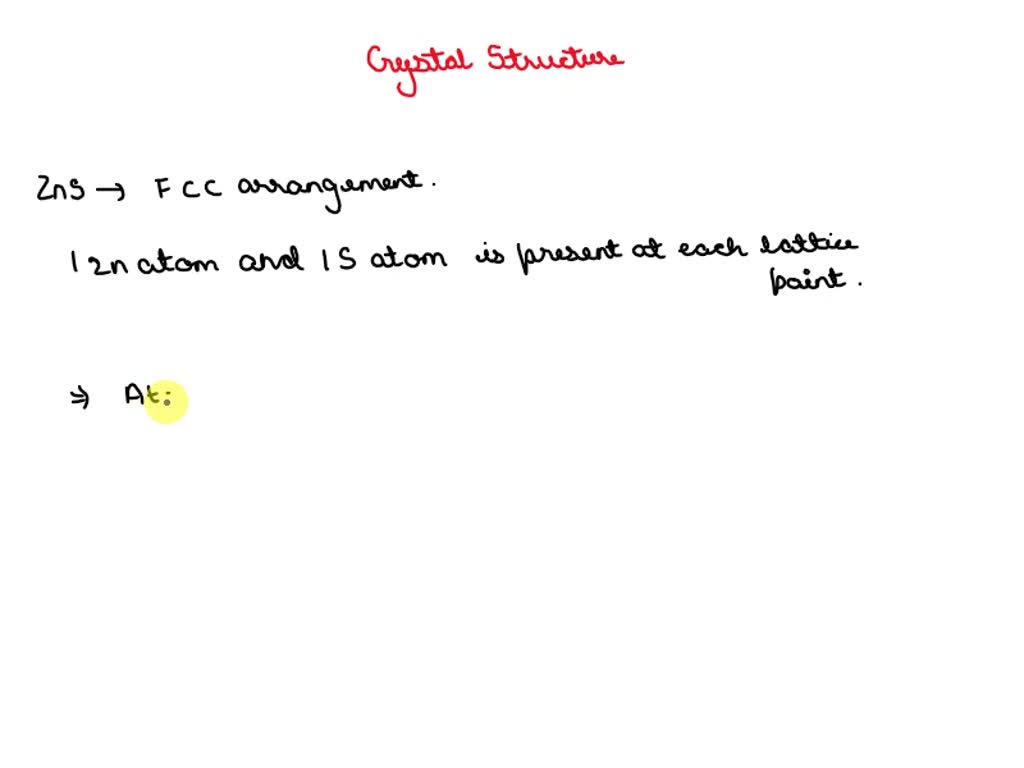 Crystal Structure
ZnS → FCC arrangement.
1 Zn atom and 1 S atom is present at each lattice
point.
⇒ At: